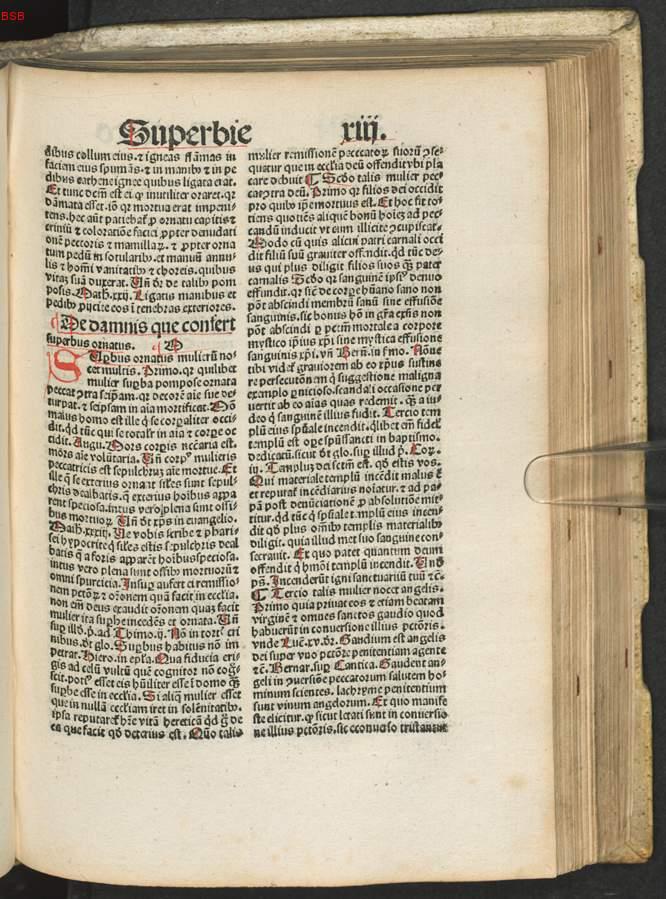 BSB
Superbie xiij.
dibus collum eius. ⁊ igneas flāmas in
faciem eius spumās. ⁊ in manibꝰ ⁊ in pe
dibus cathene ignee quibus ligata erat.
Et tunc dem̄ est ei. ꝙ inutiliter oraret. qr
dānata esset. iō qr mortua erat impeni-
tens. hec aūt patiebat᷑ ꝓ ornatu capitis ⁊
criniū ⁊ coloratiōe faciei ꝓpter denudati
onē pectoris ⁊ mamillaꝝ. ⁊ ꝓpter orna
tum pedū in sotularibꝰ. et manuū annu-
lis ⁊ hoīni vanitatibꝰ ⁊ choreis. quibus
vitaꝫ suā duxerat. Un̄ dr̄ de talibꝰ pom
posis. Math. xxij. Ligatis manibus et
pedibꝰ ꝓijcite eos ī tenebras exteriores.
De damnis que confert
superbus ornatus. D
Superbus ornatus mulierū no-
cet multis. Primo. qr quilibet
mulier suꝑba pompose ornata
peccat ꝯtra seipam. qr decorē aīe sue de-
turpat. ⁊ seipsam in aīa mortificat. Nō
malus homo est ille ꝗ se corꝑaliter occi-
dit. qd tūc qui se totalr̄ in aīa ⁊ corꝑe oc
cidit. Augu. Mors corꝑis nccāria est.
mors aīe volūtaria. Un̄ corpꝰ mulieris
peccatricis est sepulchrū aīe mortue. Et
ille ꝗ se exterius ornāt sił'es sunt sepul-
chris dealbatis. ꝗ exterius hoībus appa
rent speciosa. intus vero plena sunt ossi-
bus mortuoꝝ. Un̄ dt̄ xp̄s in euangelio.
Math. xxiij. Ue vobis scribe ⁊ phari-
sei hypocrite ꝗ sił'es estis sepulchris deal
batis ꝗ a foris apparēt hoībus speciosa.
intus vero plena sunt ossibꝰ mortuorū ⁊
omni spurcicia. Insuꝑ aufert ei remissio-
nem pctōꝝ ⁊ orōnem quā facit in ecclīa.
non em̄ deus exaudit orōnem quaꝫ facit
mulier ita suꝑbe incedēs et ornata. Un̄
suꝑ illd. p̄. ad Thimo. ij. Nō in tort' cri
nibus. dt̄ glo. Suꝑbus habitus nō im
petrat. Hiero. in epl'a. Qua fiducia eri-
gis ad celū vultū quē cognitor nō cog-
scit. potꝰ esset eis hūiliter esse ī domo ꝙ̄
suꝑbe esse in ecclīa. Si aliꝗ mulier esset
que in nullā ecclīam iret in solēnitatibꝰ.
ipsa reputaret᷑ hēre vitā hereticā qd ꝗꝫ de
ea que facit qd deterius est. Quo talis
mulier remissionē peccatoꝝ suorū ꝯse-
quatur que in ecclīa deū offendit vbi pla
care debuit Scdo talis mulier pec-
cat ꝯtra deū. Primo qr filios dei occidit
pro quibꝰ ip̄e mortuus est. Et hoc fit to-
tiens quotiēs aliquē bonū hoīeꝫ ad pec-
candū inducit vt eum illicite ꝯcupiscat.
Modo cū quis alicui patri carnali occi
dit filiū suū grauiter offendit. qd tūc de-
us qui plus diligit filios suos ꝙ̄ pater
carnalis Scdo qr sanguinē ip̄sꝰ denuo
effundit. qr sic̄ de corꝑe hūano sano non
pōt abscindi membrū sanū sine effusiōe
sanguinis. sic bonus hō in grā exn̄s non
pōt abscindi ꝑ pctm̄ mortale a corpore
mystico ip̄ius xp̄i sine mystica effusione
sanguinis xp̄i. vn̄ Bern̄. in fmo. Nōne
tibi videt᷑ grauiorem ab eo xp̄us sustine
re persecutōnem ꝗ suggestione maligna
exemplo ꝑnicioso. scandali occasione per
uertit ab eo aīas quas redemit. ꝙ̄ a iu-
deo ꝗ sanguinē illius fudit. Tercio tem
plū eius spūale incendit. qlibet em̄ fidel'
templū est oꝑe spūssancti in baptismo.
dedicatū. sicut dt̄ glo. suꝑ illud p̄. Cor.
iij. Templuꝫ dei sctm̄ est. qd estis vos.
Qui materiale templū incēdit malus ē
et reputat᷑ incēdiarius noīatur. ⁊ ad pa-
pam post denūciationē ꝓ absolutiōe mit-
titur. qd tūc ꝗ spūiale templū eius incen-
dit qd plus omībꝰ templis materialibꝰ
diligit. quia illud met suo sanguine con-
secrauit. Et quo patet quantum deum
offendit ꝗ hmōi templū incendit. Und
ps̄. Incenderūt igni sanctuariū tuū ⁊ c̄.
Tercio talis mulier nocet angelis.
Primo quia priuat eos ⁊ etiam beatam
virginē ⁊ omnes sanctos gaudio quod
haberūt in conuersione illius pctōris.
vnde Luc̄. xv. dr̄. Gaudium est angelis
dei super vno pctōre penitentiam agente
⁊c̄. Bernar. suꝑ Cantica. Gaudent an-
geli in ꝯuersiōe peccatorum salutem ho-
minum scientes. lachryme penitentium
sunt vinum angelorum. Et quo manife
ste elicitur. ꝙ sicut letati sunt in conuersio
ne illius pctōris. sic econuerso tristantur